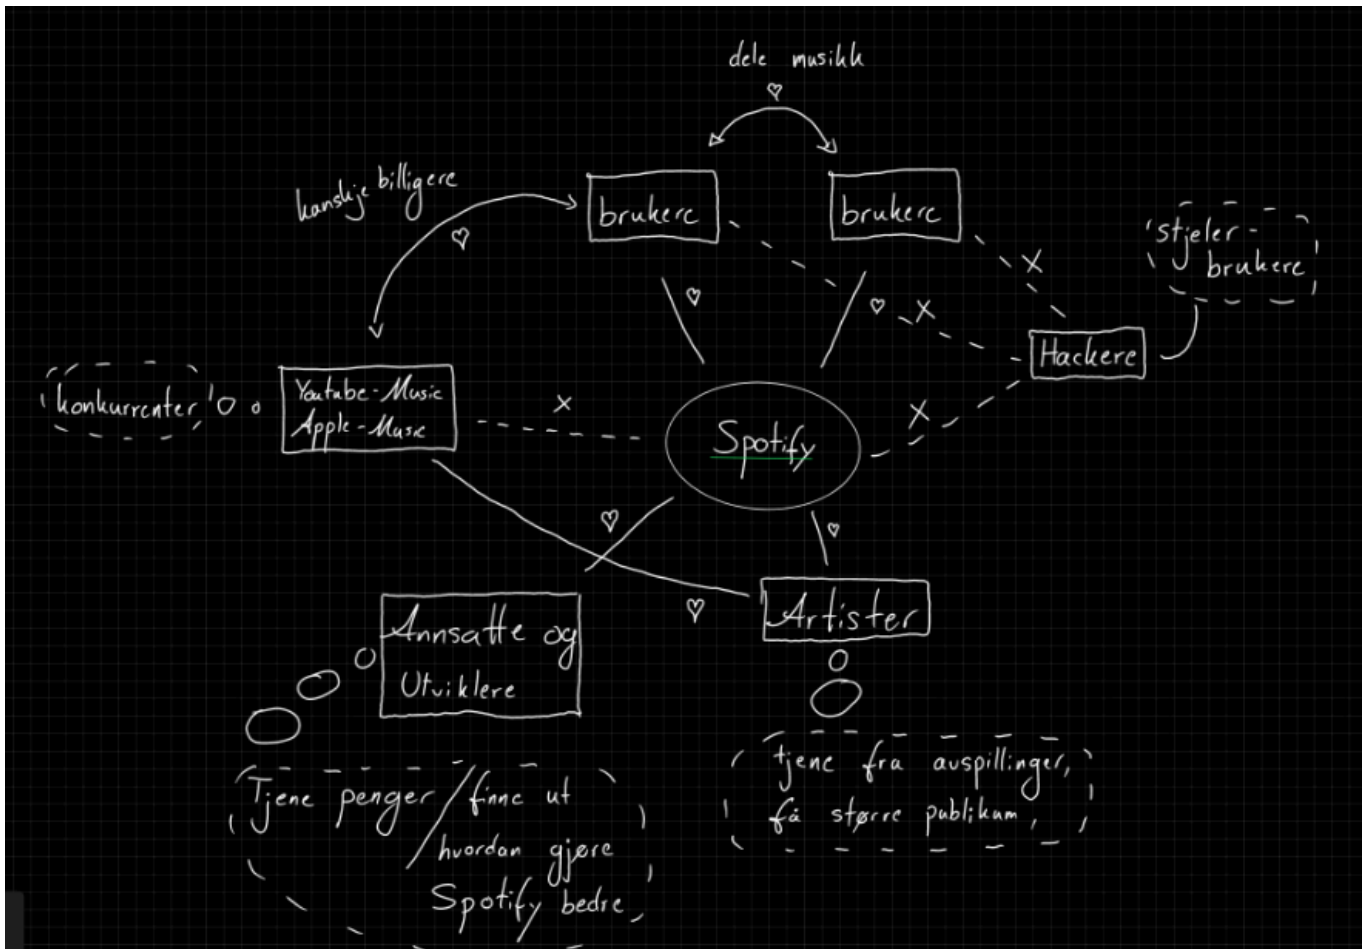 dele musikk
kanskje billigere
brukere
brukere
stjeler-
brukere
Hackere
konkurrenter
Youtube-Music
Apple-Music
Spotify
Annsatte og
Utviklere
Artister
Tjene penger / finne ut
hvordan gjøre
Spotify bedre,
tjene fra avspillinger,
få større publikum,